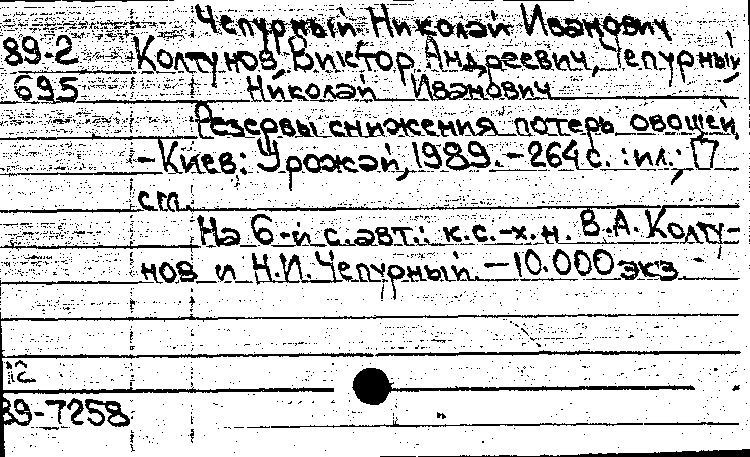 Чепурный Николай Иванович
89-2 Колтунов, Виктор Андреевич, Чепурный
695 Николай Иванович
Резервы снижения потерь овощей
-Киев: Урожай, 1989. - 264 с. : ил.; 17
см.
На 6-й с. авт.: к.с.-х.н. В.А. Колту-
нов и Н.И. Чепурный. - 10.000 экз.
12
89-7258